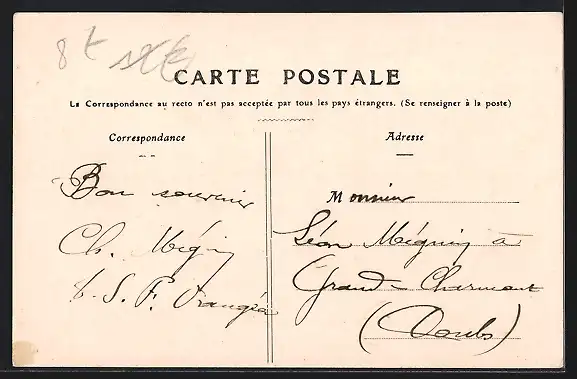 8 t
CARTE POSTALE
La Correspondance au recto n'est pas acceptée par tous les pays étrangers. (Se renseigner à la poste)
Correspondance
Bon souvenir
Ch. Mégnin
t. S. F.
Adresse
Monsieur
Léon Mégnin à
Grand-Charmont
(Doubs)